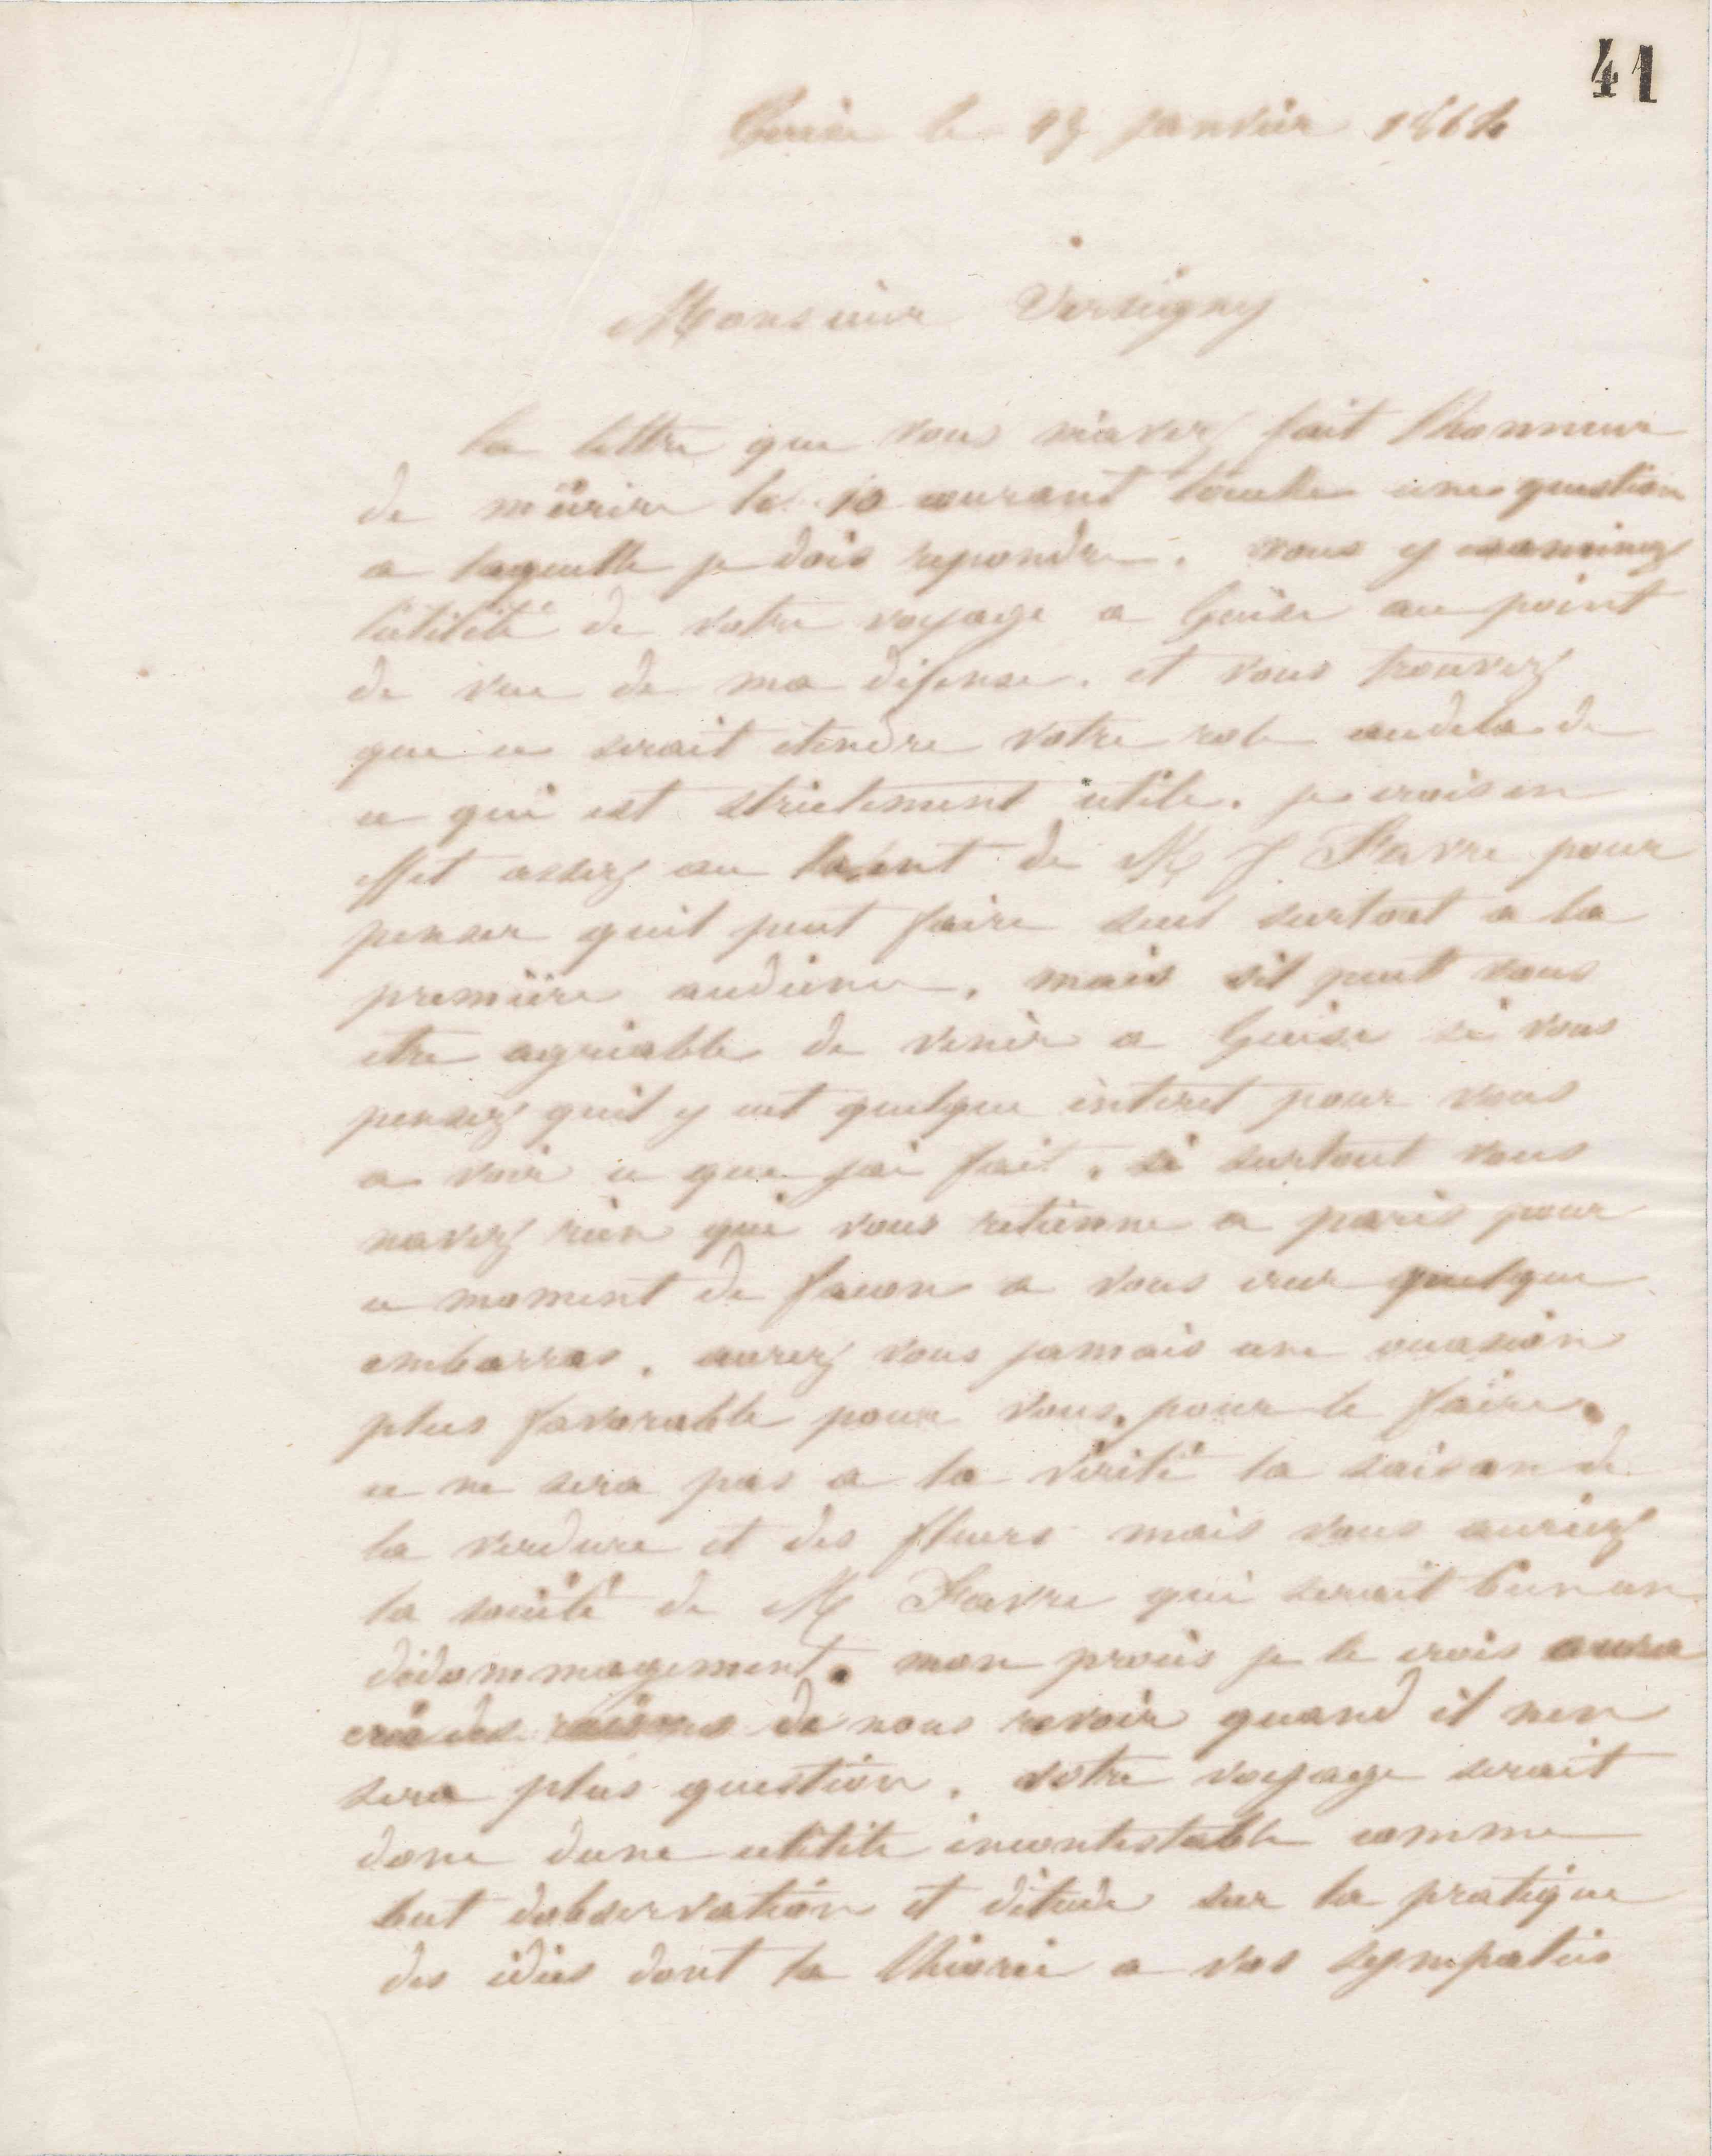 41
Guise le 13 janvier 1864
Monsieur Versigny
la lettre que vous mavez fait lhonneur
de mécrire le 10 courant touche une question
a laquelle je dois repondre. vous y examinez
lutilité de votre voyage a Guise au point
de vue de ma défense. et vous trouvez
que ce serait etendre votre role audela de
ce qui est strictement utile. je crois en
effet assez au talent de M J Favre pour
penser quil peut faire seul surtout a la
première audience, mais sil peut vous
etre agréable de venir a Guise si vous
pensez quil y ait quelque interet pour vous
a voir ce que jai fait, si surtout vous
navez rien qui vous retienne a paris pour
ce moment de facon a vous creer quelque
embarras. aurez vous jamais une occasion
plus favorable pour vous, pour le faire.
ce ne sera pas a la vérité la saison de
la verdure et des fleurs mais vous auriez
la société de M Favre qui serait bien un
dédommagement. mon procès je le crois aura
créé des raisons de nous revoir quand il nen
sera plus question. votre voyage serait
donc dune utilité incontestable comme
but dobservation et détude sur la pratique
des idées dont la théorie a vos sympaties